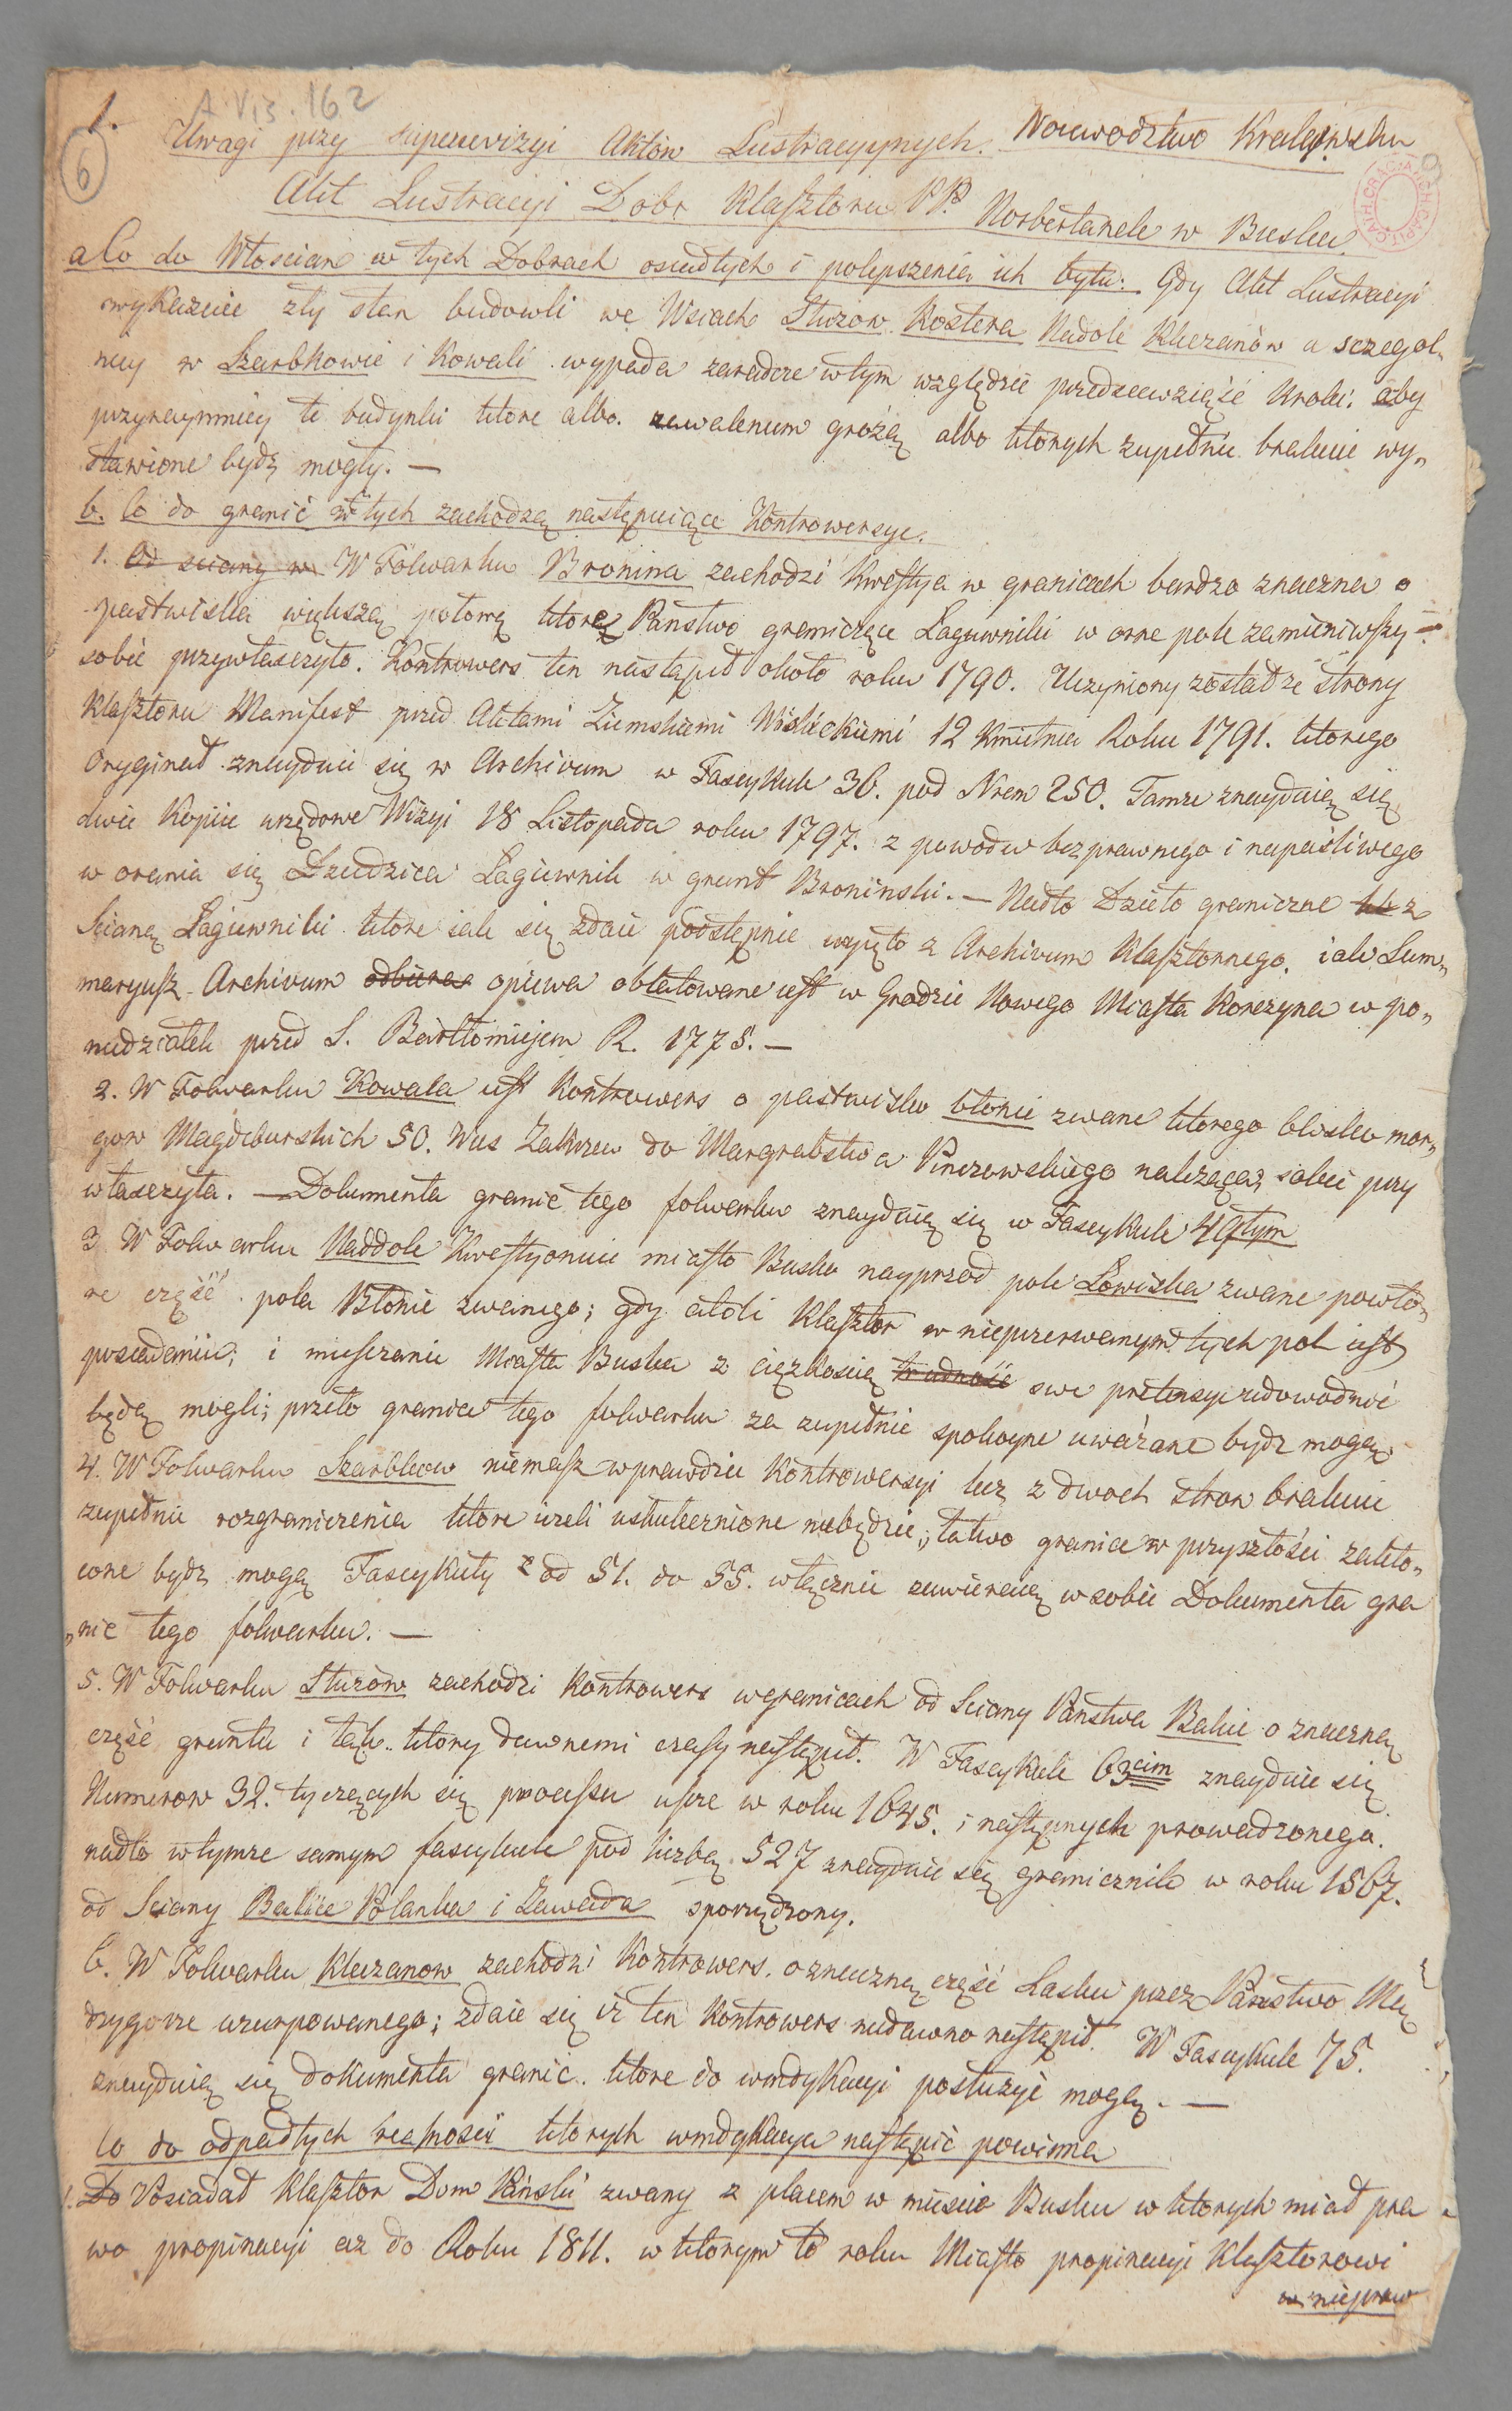 A Vis. 162
1.
6
Uwagi przy superrewizyi Aktów Lustracyynych. Woiewodztwo Krakowskie
Akt Lustracyi Dobr Klasztoru PP. Norbertanek w Busku
a Co do Włoscian w tych Dobrach osiadłych i polepszenia ich bytu. Gdy Akt Lustracyi
wykazuie zły stan budowli we Wsiach Służow Kostera Nadole Kleczanów a szczegol„
niey w Szarbkowie i Kowali wypada zaradcze w tym względzie przedsiewziąść kroki, aby
przynaymniey te budynki ktore albo zawaleniem grożą albo ktorych zupełnie brakuie wy„
stawione bydź mogły. —
b. Co do granic w tych zachodzą następuiące Kontrowersye.
1. Od sciany w W Folwarku Bronina zachodzi kwestya w granicach bardzo znaczna o
pastwiska większą połowę ktorą Państwo graniczące Łagiewniki w orne pole zamieniwszy
sobie przywłaszczyło. Kontrowers ten nastąpił około roku 1790. Uczyniony został ze strony
Klasztoru Manifest przed Aktami Ziemskiemi Wislickiemi 12 Kwietnia Roku 1791. ktorego
Oryginał znayduie się w Archivum w Fascykule 36. pod Nrem 250. Tamże znayduią się
dwie Kopiie urzędowe Wizyi 18 Listopada roku 1797. z powodu bezprawnego i napaśliwego
w orania się Dziedzica Łagiewnik w grunt Broninski. — Nadto Dzieło graniczne z
Scianą Łagiewniki ktore iak się zdaie podstępnie wzięto z Archivum Klasztornego, iak Sum„
maryusz Archivum odbiera opiewa oblatowane iest w Grodzie Nowego Miasta Korczyna w po„
niedziałek przed S. Bartłomiejem R. 1775. —
2. W Folwarku Kowala iest Kontrowers o pastwisko błonie zwane ktorego blisko mor„
gow Magdeburskich 50. Wieś Zakrzew do Margrabstwa Pinczowskiego należąca, sobie przy
właszczyła. — Dokumenta granic tego folwarku znayduią się w Fascykule 49tym
3 W Folwarku Naddole Kwestyonuie miasto Busko nayprzod pole Łowiska zwane powto„
re część pola Błonie zwanego; gdy atoli Klasztor w nieprzerwanym tych pol iest
posiadaniu; i mieszczanie Miasta Buska z ciężkoscią trudność swe pretensye udowodnić
będą mogli; przeto granica tego folwarku za zupełnie spokoyne uważane bydź mogą.
4. W Folwarku Szarbkow niemasz wprawdzie Kontrowersyi lecz z dwoch stron brakuie
zupełnie rozgraniczenia ktore ieżeli uskutecznione niebędzie, łatwo granice w przyszłości zakło„
cone bydź mogą Fascykuły z od 51. do 55. włącznie zawieraią w sobie Dokumenta gra
„nic tego folwarku. —
5. W Folwarku Służów zachodzi Kontrowers w granicach od Sciany Państwa Balic o znaczną
część gruntu i łąk ktory dawnemi czasy nastąpił. W Fascykule 63cim znayduie się
Numerow 32. tyczących się processu ieszcze w roku 1645. i następnych prowadzonego.
nadto w tymże samym fascykule pod liczbą 527 znayduie się granicznik w roku 1567.
od Sciany Balice Polanka i Zawada sporządzony.
6. W Folwarku Kleczanow zachodzi Kontrowers o znaczną część Lasku przez Państwo Mię
drygorze uzurpowanego; zdaie się iż ten Kontrowers niedawno nastąpił. W Fascykule 75.
znayduią się dokumenta granic ktore do windykacyi posłużyć mogą. —
Co do odpadłych realnosci ktorych windykacya nastąpić powinna
1. Do Posiadał Klasztor Dom Pański zwany z placem w miescie Busku w ktorych miał pra
wo propinacyi aż do Roku 1811. w ktorym to roku Miasto propinacyi Klasztorowi
w niepraw